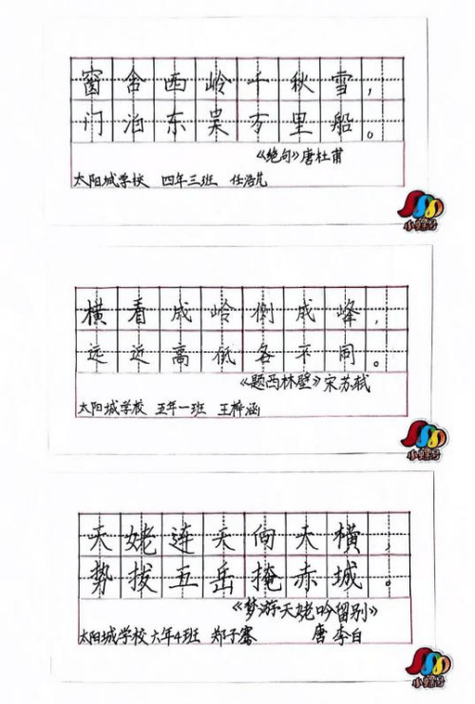 窗含西岭千秋雪，
门泊东吴万里船。
《绝句》唐杜甫
太阳城学校 四年三班 任浩凡
横看成岭侧成峰，
远近高低各不同。
《题西林壁》宋苏轼
太阳城学校 五年一班 王梓涵
天姥连天向天横，
势拔五岳掩赤城。
《梦游天姥吟留别》
太阳城学校六年4班 郑子骞 唐 李白